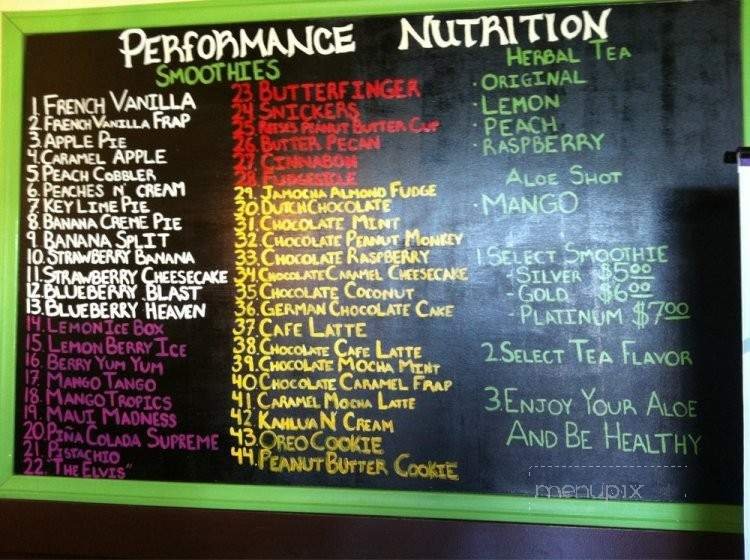 PERFORMANCE NUTRITION
SMOOTHIES
1. FRENCH VANILLA
2. FRENCH VANILLA FRAP
3. APPLE PIE
4. CARAMEL APPLE
5. PEACH COBBLER
6. PEACHES N' CREAM
7. KEY LIME PIE
8. BANANA CREME PIE
9. BANANA SPLIT
10. STRAWBERRY BANANA
11. STRAWBERRY CHEESECAKE
12. BLUEBERRY BLAST
13. BLUEBERRY HEAVEN
14. LEMON ICE BOX
15. LEMON BERRY ICE
16. BERRY YUM YUM
17. MANGO TANGO
18. MANGO TROPICS
19. MAUI MADNESS
20. PIÑA COLADA SUPREME
21. PISTACHIO
22. "THE ELVIS"
23. BUTTERFINGER
24. SNICKERS
25. REESES PEANUT BUTTER CUP
26. BUTTER PECAN
27. CINNABON
28. FUDGESICLE
29. JAMOCHA ALMOND FUDGE
30. DUTCH CHOCOLATE
31. CHOCOLATE MINT
32. CHOCOLATE PEANUT MONKEY
33. CHOCOLATE RASPBERRY
34. CHOCOLATE CARAMEL CHEESECAKE
35. CHOCOLATE COCONUT
36. GERMAN CHOCOLATE CAKE
37. CAFE LATTE
38. CHOCOLATE CAFE LATTE
39. CHOCOLATE MOCHA MINT
40. CHOCOLATE CARAMEL FRAP
41. CARAMEL MOCHA LATTE
42. KAHLUA N' CREAM
43. OREO COOKIE
44. PEANUT BUTTER COOKIE
HERBAL TEA
· ORIGINAL
· LEMON
· PEACH
· RASPBERRY
ALOE SHOT
· MANGO
1. SELECT SMOOTHIE
- SILVER $5.00
- GOLD $6.00
- PLATINUM $7.00
2. SELECT TEA FLAVOR
3. ENJOY YOUR ALOE
AND BE HEALTHY
menupix